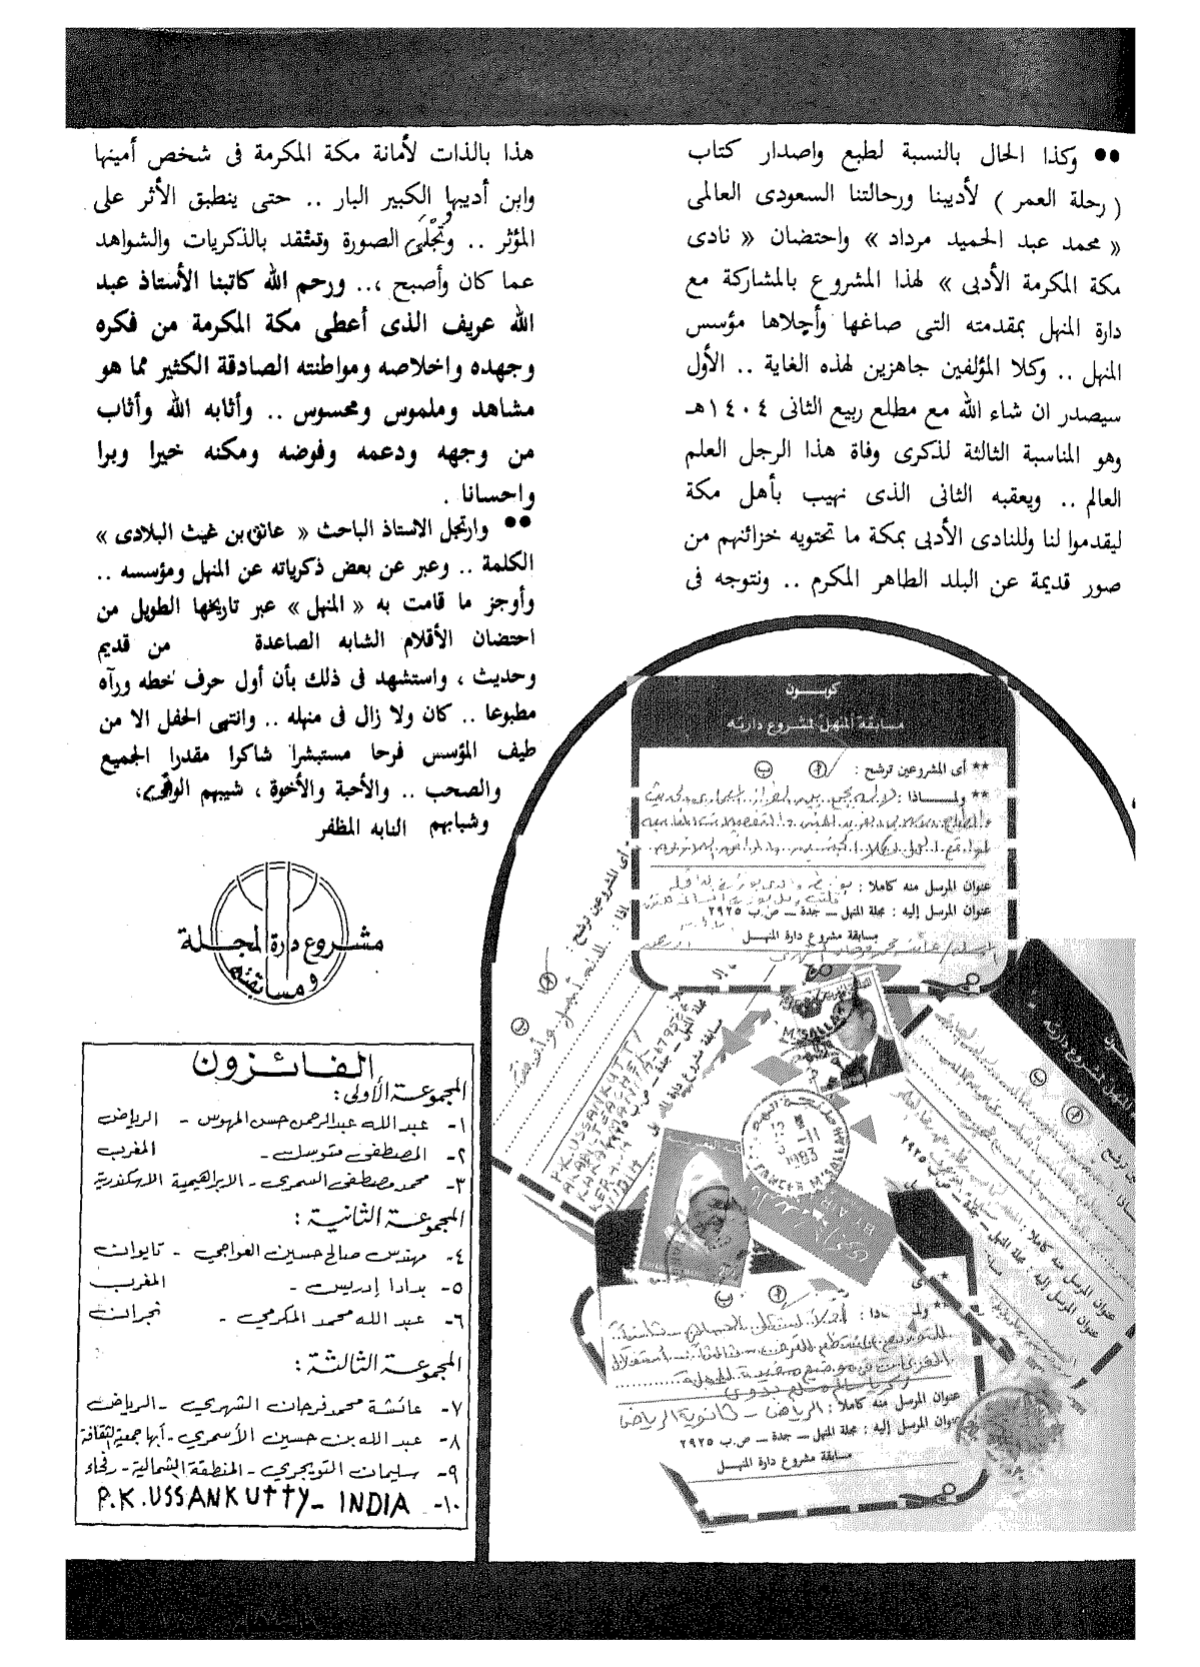 ●● وكذا الحال بالنسبة لطبع واصدار كتاب
( رحلة العمر ) لأديبنا ورحالتنا السعودى العالمى
« محمد عبد الحميد مرداد » واحتضان « نادى
مكة المكرمة الأدبى » لهذا المشروع بالمشاركة مع
دارة المنهل بمقدمته التى صاغها وأجلاها مؤسس
المنهل .. وكلا المؤلفين جاهزين لهذه الغاية .. الأول
سيصدر ان شاء الله مع مطلع ربيع الثانى ١٤٠٤هـ
وهو المناسبة الثالثة لذكرى وفاة هذا الرجل العلم
العالم .. ويعقبه الثانى الذى نهيب بأهل مكة
ليقدموا لنا وللنادى الأدبى بمكة ما تحتويه خزائنهم من
صور قديمة عن البلد الطاهر المكرم .. ونتوجه فى
هذا بالذات لأمانة مكة المكرمة فى شخص أمينها
وابن أديبها الكبير البار .. حتى ينطبق الأثر على
المؤثر .. وتُجْلَى الصورة وتنتقد بالذكريات والشواهد
عما كان وأصبح ،.. ورحم الله كاتبنا الأستاذ عبد
الله عريف الذى أعطى مكة المكرمة من فكره
وجهده واخلاصه ومواطنته الصادقة الكثير مما هو
مشاهد وملموس ومحسوس .. وأثابه الله وأثاب
من وجهه ودعمه وفوضه ومكنه خيرا وبرا
واحسانا .
●● وارتجل الاستاذ الباحث « عاتق بن غيث البلادى »
الكلمة .. وعبر عن بعض ذكرياته عن المنهل ومؤسسه ..
وأوجز ما قامت به « المنهل » عبر تاريخها الطويل من
احتضان الأقلام الشابه الصاعدة من قديم
وحديث ، واستشهد فى ذلك بأن أول حرف خطه ورآه
مطبوعا .. كان ولا زال فى منهله .. وانتهى الحفل الا من
طيف المؤسس فرحا مستبشرا شاكرا مقدرا الجميع
والصحب .. والأحبة والأخوة ، شيبهم الوقور،
وشبابهم النابه المظفر
مشروع دارة المجلة
ومسابقته
الفائزون
المجموعة الأولى:
١- عبدالله عبدالرحمن حسن المهوس - الرياض
٢- المصطفى متوسل - المغرب
٣- محمد مصطفى السمري - الابراهيمية الاسكندرية
المجموعة الثانية :
٤- مهندس صالح حسين العواجي - تايوان
٥- بدادا إدريس - المغرب
٦- عبد الله محمد المكرمي - نجران
المجموعة الثالثة :
٧- عائشة محمد فرحان الشهري - الرياض
٨- عبد الله بن حسين الأسمري - أبها جمعية الثقافة
٩- سليمان التويجري - المنطقة الشمالية - رفحاء
١٠- P.K.USSANKUTTY - INDIA
كوبون
مسابقة المنهل لمشروع دارته
** أى المشروعين ترشح : أ ب
** ولماذا :
عنوان المرسل منه كاملا :
عنوان المرسل إليه : مجلة المنهل – جدة – ص.ب ٢٩٢٥
مسابقة مشروع دارة المنهل
أى المشروعين ترشح :
P.K.USSANKUTTY
INDIA
1983
BY AIR
عنوان المرسل منه كاملا :
عنوان المرسل إليه : مجلة المنهل – جدة – ص.ب ٢٩٢٥
عنوان المرسل منه كاملا : الرياض - ثانوية الرياض
عنوان المرسل إليه : مجلة المنهل – جدة – ص.ب ٢٩٢٥
مسابقة مشروع دارة المنهل